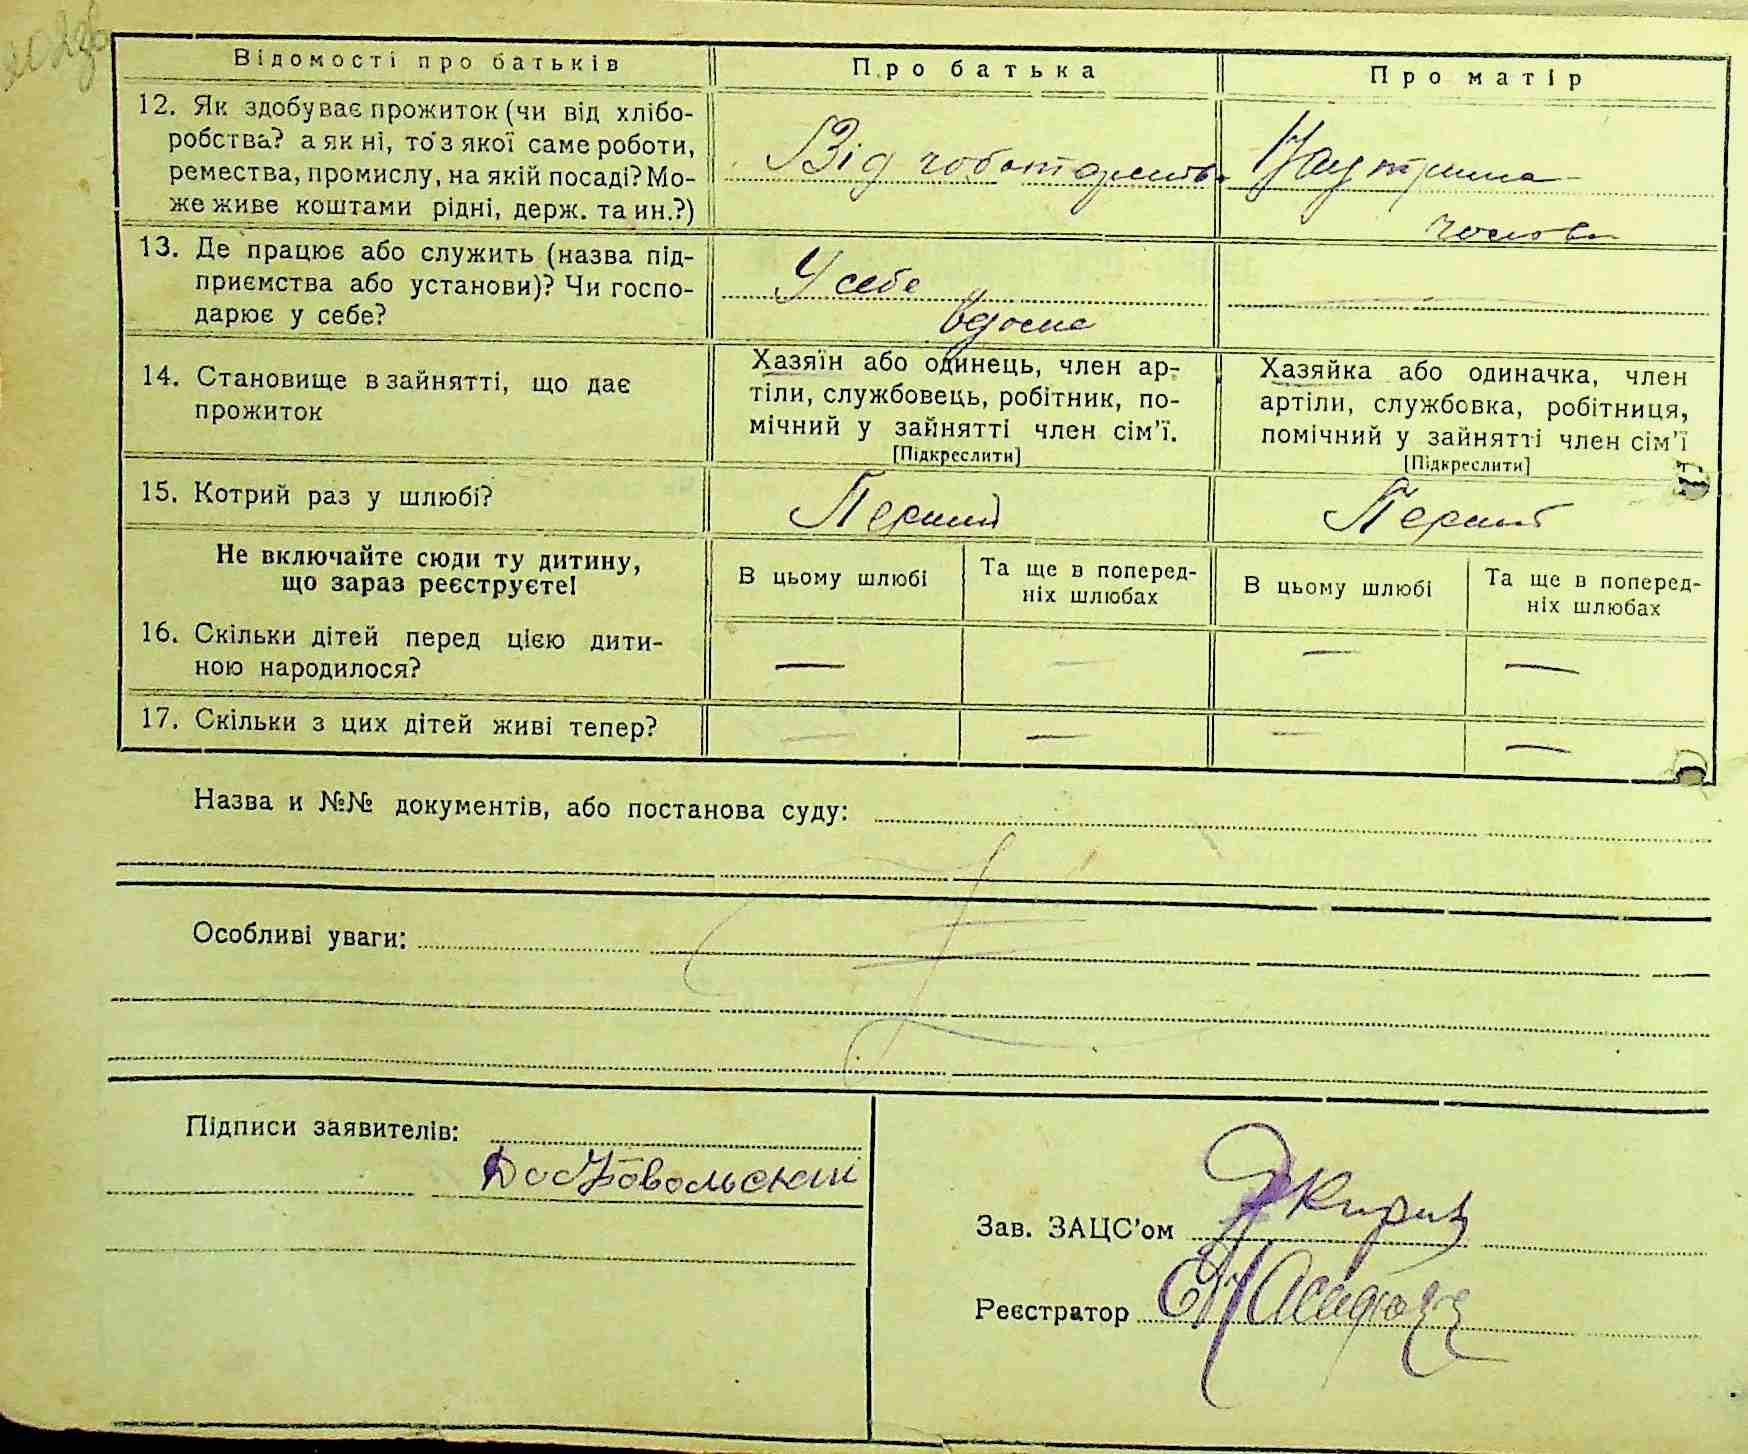 Відомості про батьків
Про батька
Про матір
12. Як здобуває прожиток (чи від хлібо-
робства? а як ні, то з якої саме роботи,
ремества, промислу, на якій посаді? Мо-
же живе коштами рідні, держ. та ин.?)
Від
13. Де працює або служить (назва під-
приємства або установи)? Чи госпо-
дарює у себе?
У себе
вдома
14. Становище в зайнятті, що дає
прожиток
Хазяїн або одинець, член ар-
тіли, службовець, робітник, по-
мічний у зайнятті член сім'ї.
[Підкреслити]
Хазяйка або одиначка, член
артіли, службовка, робітниця,
помічний у зайнятті член сім'ї
[Підкреслити]
15. Котрий раз у шлюбі?
Перший
Перший
Не включайте сюди ту дитину,
що зараз реєструєте!
В цьому шлюбі
Та ще в поперед-
ніх шлюбах
В цьому шлюбі
Та ще в поперед-
ніх шлюбах
16. Скільки дітей перед цією дити-
ною народилося?
—
—
—
—
17. Скільки з цих дітей живі тепер?
—
—
—
—
Назва и №№ документів, або постанова суду:
Особливі уваги:
Підписи заявителів:
Зав. ЗАЦС'ом
Реєстратор